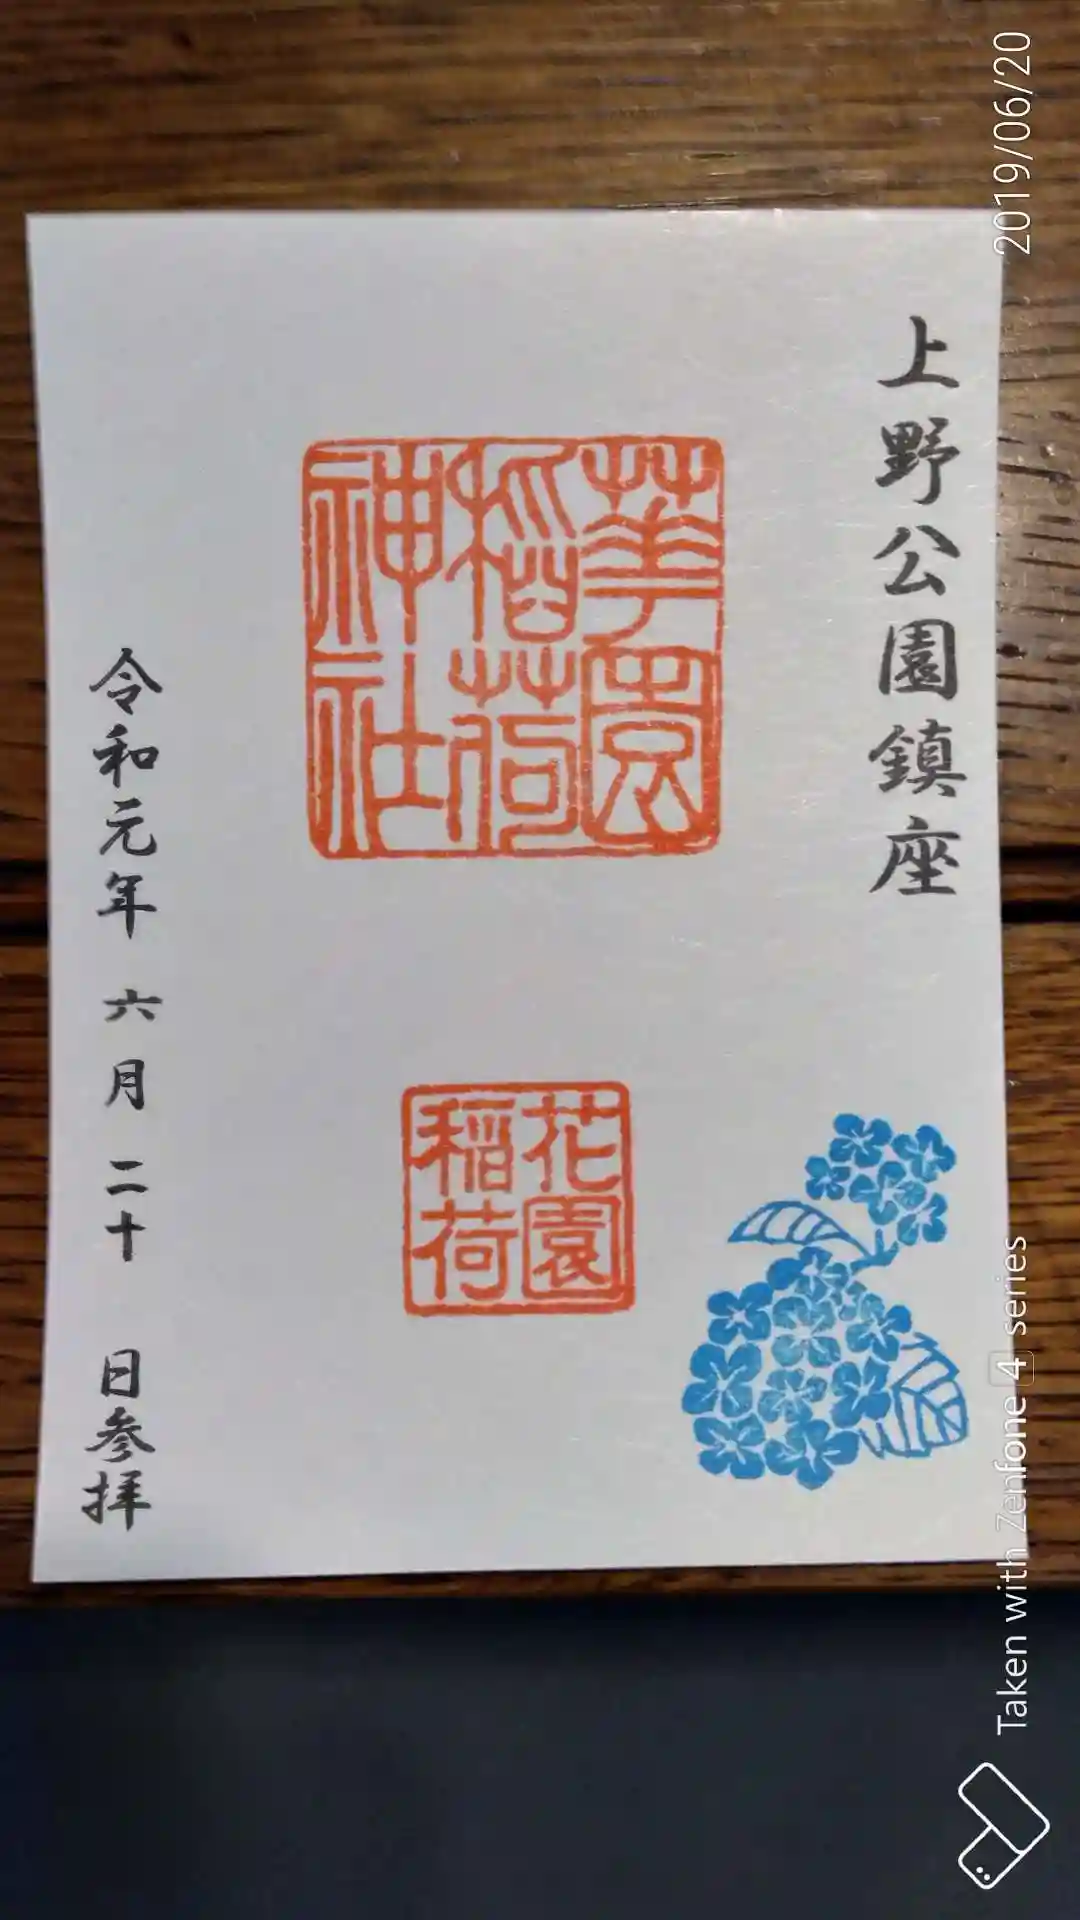 上野公園鎮座
華園
稲荷
神社
花園
稲荷
令和元年 六月 二十 日参拝
2019/06/20
Taken with Zenfone 4 series